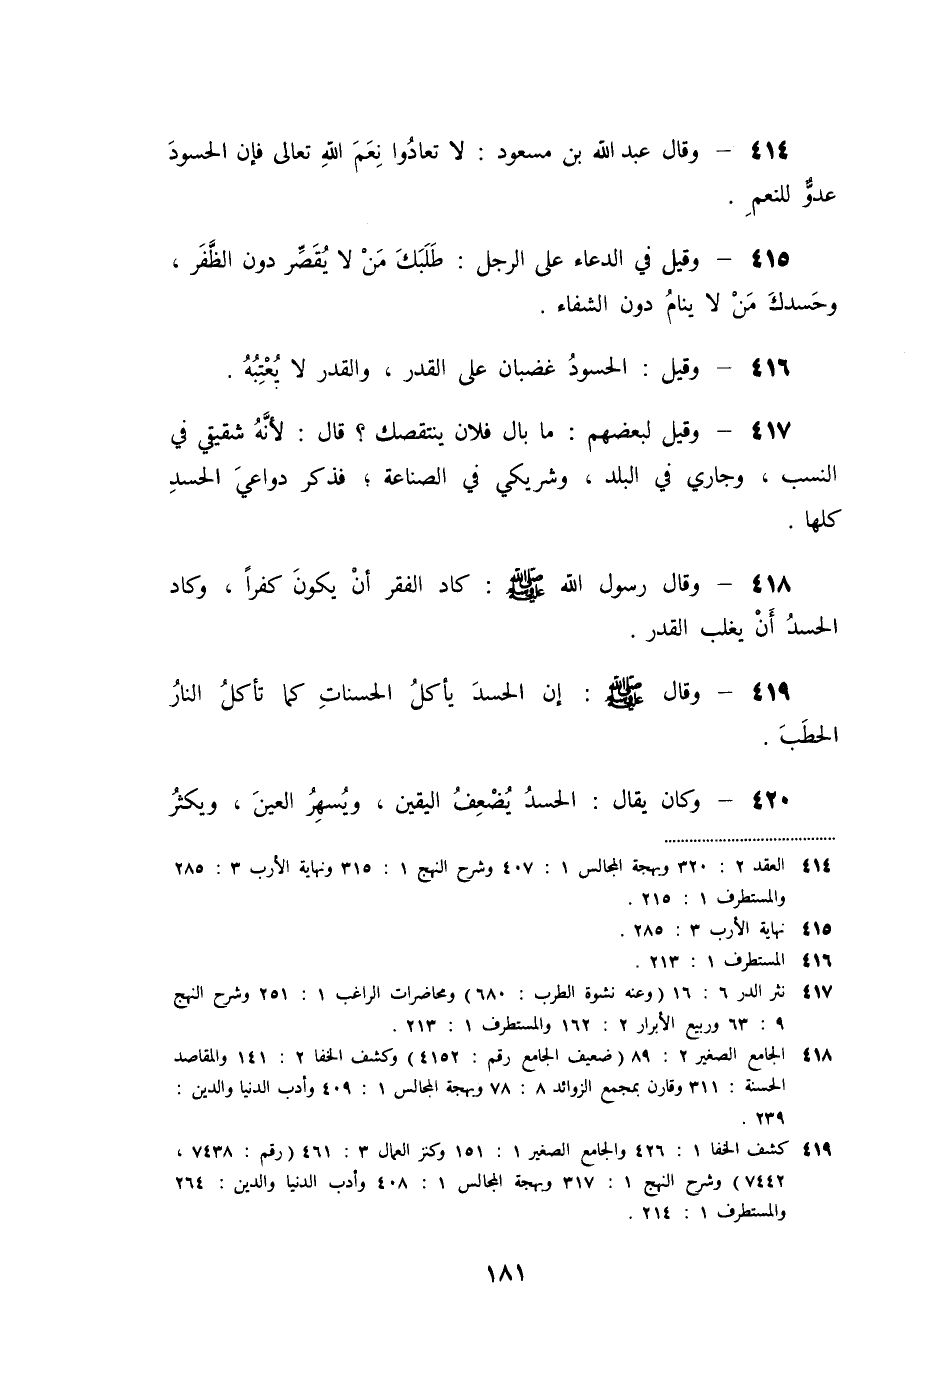 ٤١٤ – وقال عبد الله بن مسعود : لا تعادُوا نِعَمَ اللهِ تعالى فإن الحسودَ
عدوٌّ للنعمِ .
٤١٥ – وقيل في الدعاء على الرجل : طَلَبَكَ مَنْ لا يُقَصِّر دون الظَّفَر ،
وحَسدكَ مَنْ لا ينامُ دون الشفاء .
٤١٦ – وقيل : الحسودُ غضبان على القدر ، والقدر لا يُعْتِبُهُ .
٤١٧ – وقيل لبعضهم : ما بال فلان ينتقصك ؟ قال : لأنَّهُ شقيقي في
النسب ، وجاري في البلد ، وشريكي في الصناعة ؛ فذكر دواعيَ الحسدِ
كلها .
٤١٨ – وقال رسول الله ﷺ : كاد الفقر أنْ يكونَ كفراً ، وكاد
الحسدُ أَنْ يغلب القدر .
٤١٩ – وقال ﷺ : إن الحسدَ يأكلُ الحسناتِ كما تأكلُ النارُ
الحطَبَ .
٤٢٠ – وكان يقال : الحسدُ يُضْعِفُ اليقين ، ويُسهِرُ العينَ ، ويكثرُ
٤١٤ العقد ٢ : ٣٢٠ وبهجة المجالس ١ : ٤٠٧ وشرح النهج ١ : ٣١٥ ونهاية الأرب ٣ : ٢٨٥
والمستطرف ١ : ٢١٥ .
٤١٥ نهاية الأرب ٣ : ٢٨٥ .
٤١٦ المستطرف ١ : ٢١٣ .
٤١٧ نثر الدر ٦ : ١٦ (وعنه نشوة الطرب : ٦٨٠) ومحاضرات الراغب ١ : ٢٥١ وشرح النهج
٩ : ٦٣ وربيع الأبرار ٢ : ١٦٢ والمستطرف ١ : ٢١٣ .
٤١٨ الجامع الصغير ٢ : ٨٩ (ضعيف الجامع رقم : ٤١٥٢) وكشف الخفا ٢ : ١٤١ والمقاصد
الحسنة : ٣١١ وقارن بمجمع الزوائد ٨ : ٧٨ وبهجة المجالس ١ : ٤٠٩ وأدب الدنيا والدين :
٢٣٩ .
٤١٩ كشف الخفا ١ : ٤٢٦ والجامع الصغير ١ : ١٥١ وكنز العمال ٣ : ٤٦١ (رقم : ٧٤٣٨ ،
٧٤٤٢) وشرح النهج ١ : ٣١٧ وبهجة المجالس ١ : ٤٠٨ وأدب الدنيا والدين : ٢٦٤
والمستطرف ١ : ٢١٤ .
١٨١